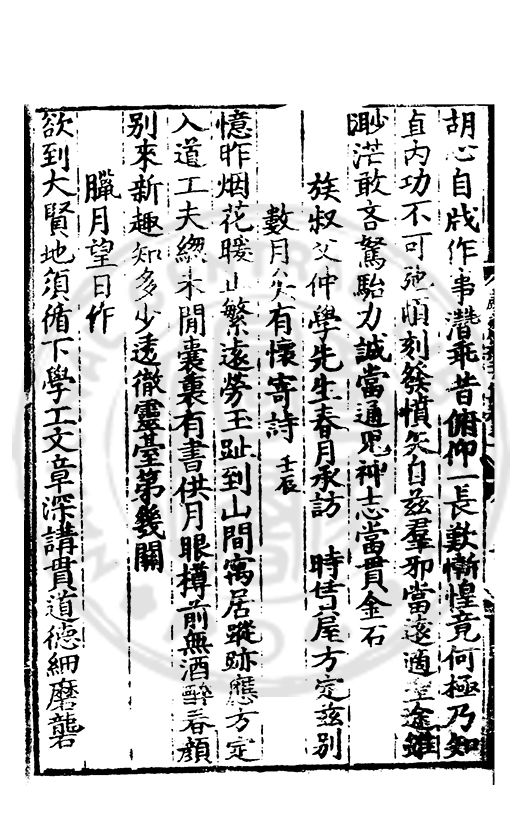 胡心自戕作事濳乖昔俯仰一長歎慚惶竟何極乃知
直内功不可弛頃刻發憤矢自兹羣邪當遠適 途雖
渺茫敢吝駑駘力誠當通鬼神志當貫金石
族叔父仲學先生春月承訪 時 屋方定兹别
數月矣有懷寄詩 壬辰
憶昨烟花暖 繁遠勞玉趾到山間寓居蹤跡應方定
入道工夫緫未閒囊裏有書供月眼樽前無酒醉春顔
别來新趣知多少透徹靈臺第幾關
臘月望日作
欲到大賢地須循下學工文章深講貫道德細磨礱